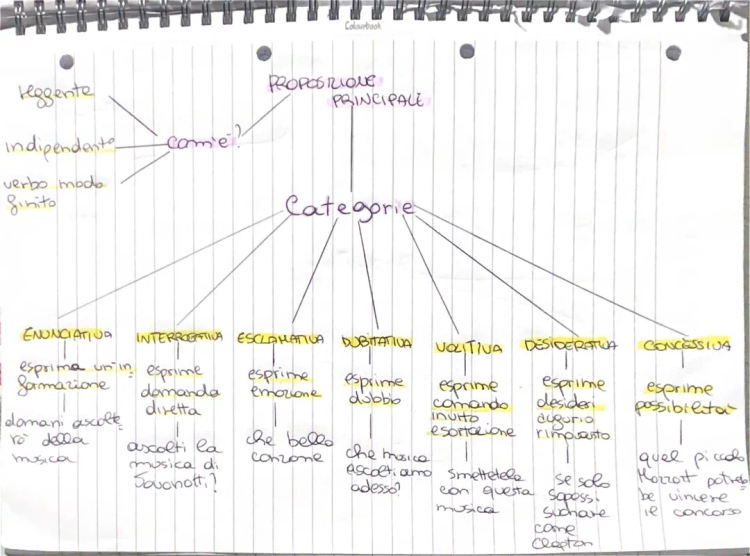 Colourbook
PROPOSIZIONE
PRINCIPALE
reggente
com'è?
indipendente
verbo modo
finito
Categorie
ENUNCIATIVA
esprima un'in
formazione
domani ascolte
rò della
musica
INTERROGATIVA
esprime
domanda
diretta
ascolti la
musica di
Jovanotti?
ESCLAMATIVA
esprime
emozione
che bella
canzone
DUBITATIVA
esprime
dubbio
che musica
ascoltiamo
adesso?
VOLITIVA
esprime
comando
invito
esortazione
smettetela
con questa
musica
DESIDERATIVA
esprime
desideri
augurio
rimpianto
se solo
sapessi
suonare
come
Clapton
CONCESSIVA
esprime
possibilità
quel piccolo
Mozart potreb
be vincere
il concorso